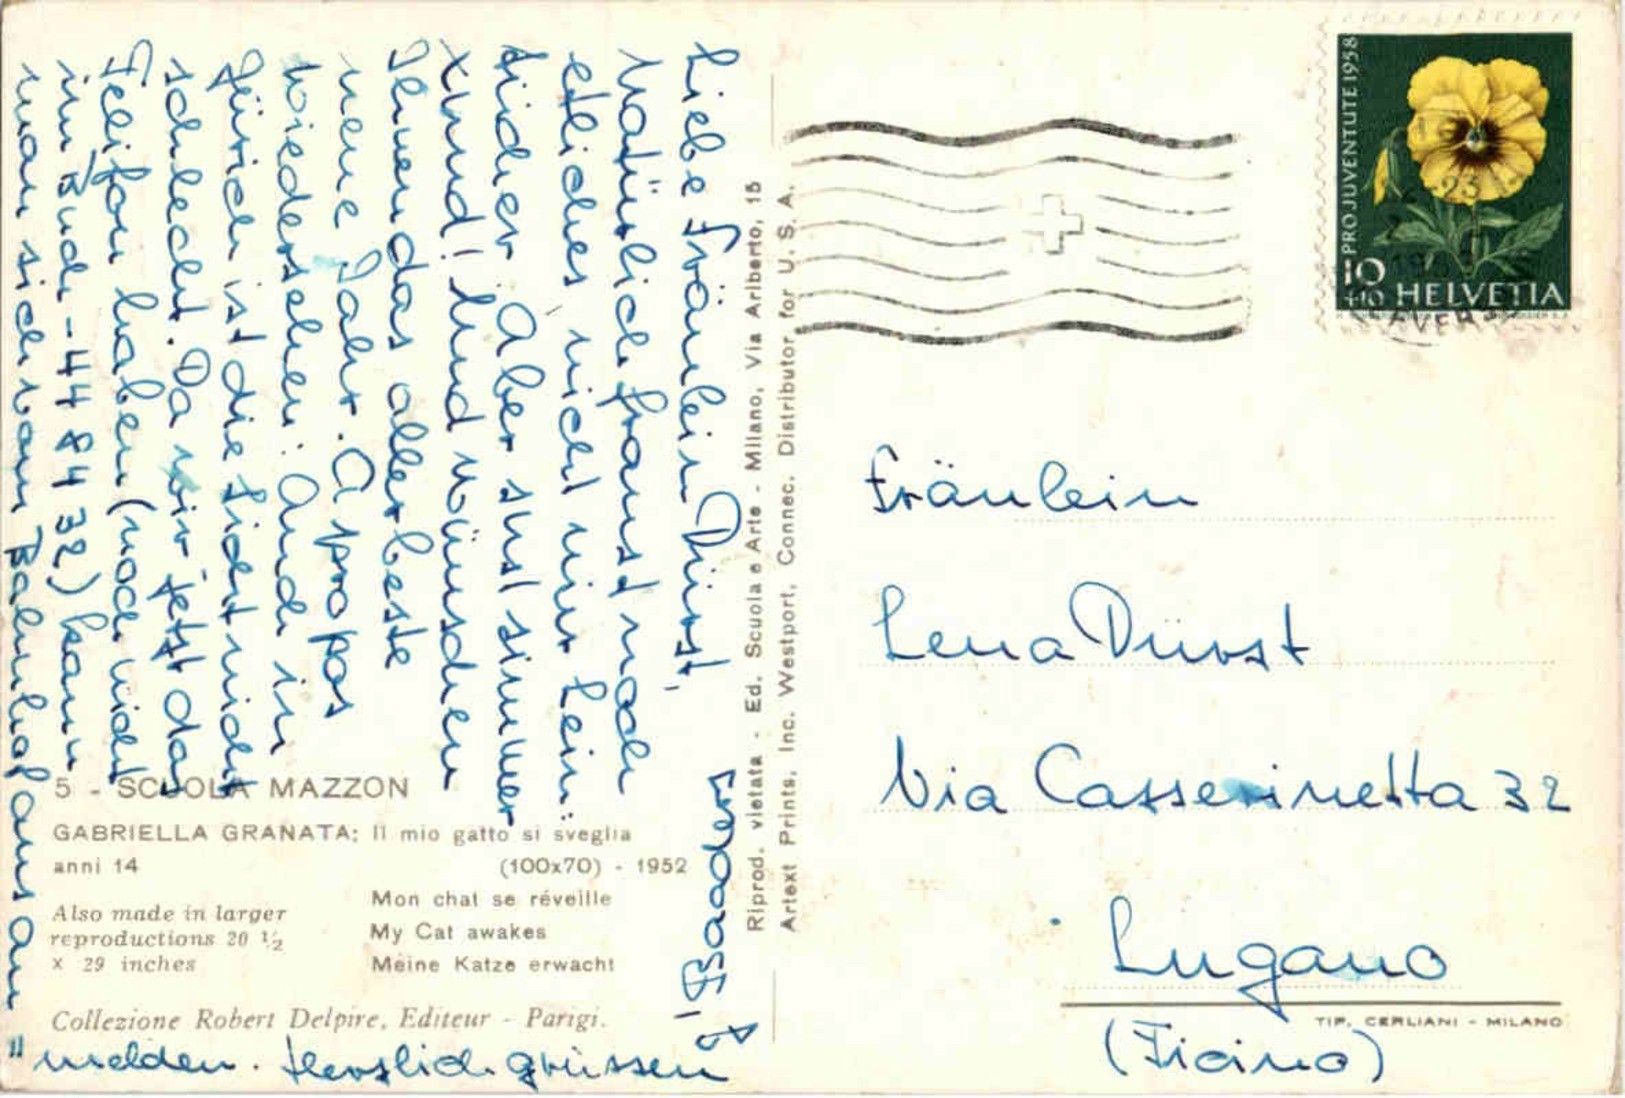 Liebe Fräulein Dürst,
Natürlich franst noch
etliches, nicht nur kein:
Tücher. Aber sust simmer
xund! Und wünschen
Ihnen das allerbeste
neue Jahr. A propos
Wiedersehen: Auch in
Zürich ist die Sicht nicht
schlecht. Da wir jetzt das
Telifon haben (noch nicht
im Buch - 44 84 32) kann
man sich vom Bahnhof aus an=
"melden. Herzlich grüssen
5 - SCUOLA MAZZON
GABRIELLA GRANATA: Il mio gatto si sveglia
anni 14 (100x70) - 1952
Mon chat se réveille
My Cat awakes
Meine Katze erwacht
Also made in larger
reproductions 20 ½
x 29 inches
Collezione Robert Delpire, Editeur - Parigi.
Riprod. vietata - Ed. Scuola e Arte - Milano, Via Ariberto, 15
Artext Prints, Inc. Westport, Connec. Distributor for U. S. A.
PRO JUVENTUTE 1958
10
+10 HELVETIA
Fräulein
Lena Dürst
Via Casserinetta 32
Lugano
(Ticino)
TIP. CERLIANI - MILANO